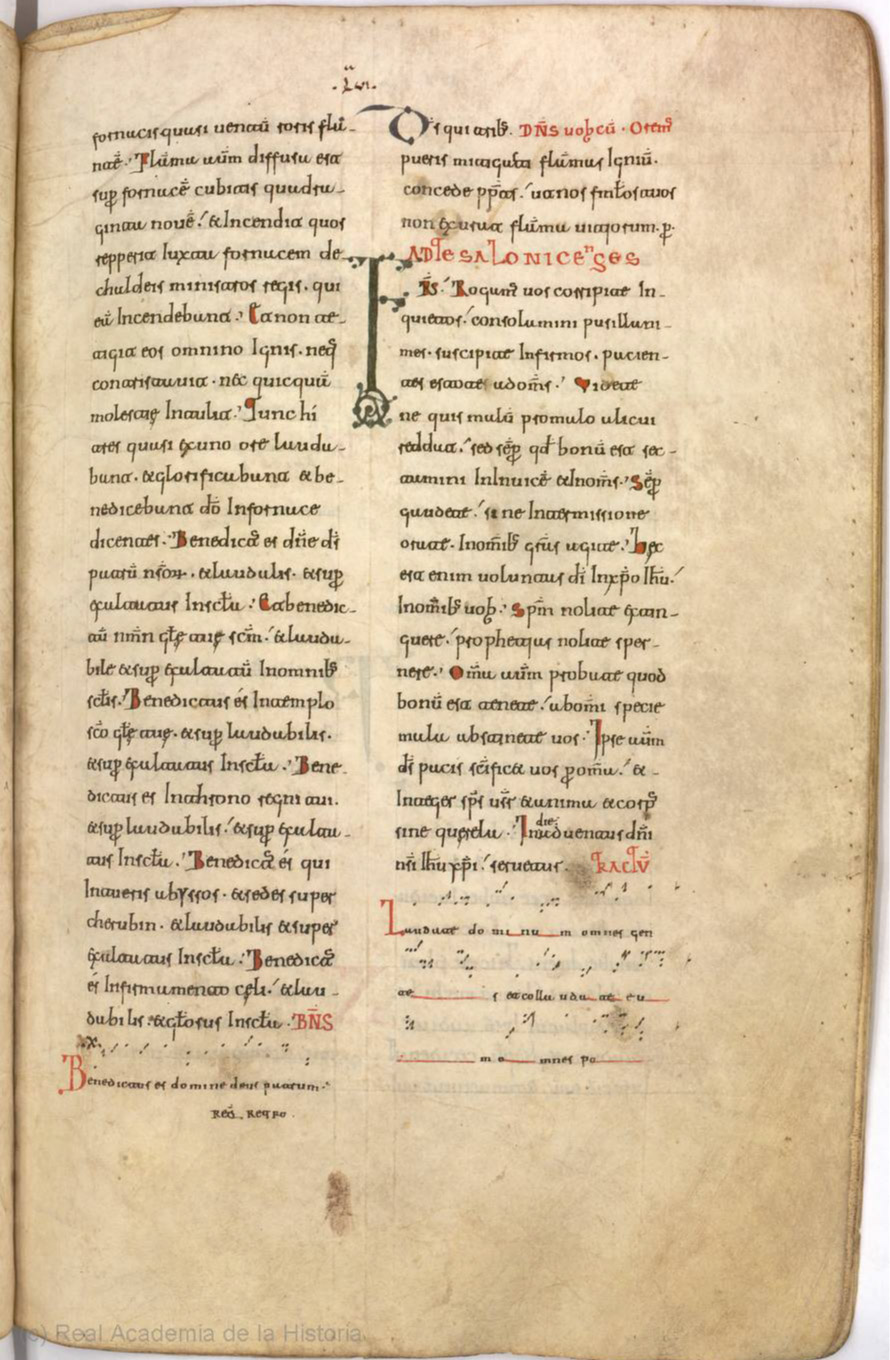 ·Lvi·
fornucis quasi uentū roris flū-
nat̄. Flāma aūm diffusa est
sup̄ fornacē cubitis quadra-
ginta nouē. & Incendit quos
repperit Iuxta fornacem de
chaldeis ministros regis. qui
eū Incendebant. Et non te-
tigit eos omnino Ignis. neq̄
contristauit. nēc quicquā
molestię Intulit. Tunc hi
tres quasi ex uno ore lauda-
bant. & glorificabant & be-
nedicebant dō Infornace
dicentes. Benedict᷒ es dn̄e ds̄
patrū nr̄oꝝ. & laudabilis. & sup̄
exaltatus In sc̄la. Et benedic-
tū nm̄n glę tuę sc̄m. & lauda-
bile & sup̄ exaltatū In omnib᷒
sc̄lis. Benedictus és In templo
sc̄o glę tuę. & sup̄ laudabilis.
& sup̄ exaltatus In sc̄la. Bene-
dictus es In throno regni tui.
& sup̄ laudabilis. & sup̄ exalta-
tus In sc̄la. Benedict᷒ és qui
Intueris abyssos. & sedes super
cherubin. & laudabilis & super
exaltatus In sc̄la. Benedict᷒
és In firmamento cęli. & lau-
dabilis. & glosus In sc̄la. BN̄S
Benedictus es domine deus patrum.
Req̄. Retro.
Ds̄ qui trib᷒. DN̄S uobcū. Orem᷒
pueris mitigasti flāmas Igniū.
concede pp̄as. ut nos fmłos tuos
non exurat flāma uitiorum. p̄.
AD TESALONICENSES
FR̄S. Rogam᷒ uos corripite In-
quietos. consolamini pusillani-
mes. suscipite Infirmos. pacien-
tes estote ad om̄s. Videte
ne quis malū pro malo alicui
reddat. sed sēp̄ qđ bonū est sec-
tamini In Inuicē & In om̄s. Sēp̄
gaudete. sine Intermissione
orate. In om̄ib᷒ gr̄as agite. Hęc
est enim uoluntas dī In xp̄o Ihū.
In om̄ib᷒ uob᷒. Spm̄ nolite extin-
guere. prophetias nolite sper-
nere. Om̄a aūm probate quod
bonū est tenete. ab om̄i specie
mala abstinete uos. Ipse aūm
ds̄ pacis sc̄ificet uos p̄ om̄a. & -
Integer sp̄s ur̄ & anima & corp᷒
sine querela. In die aduentus dn̄i
nr̄i Ihū xp̄i. seruetur. TRACTV̄
Laudate do mi nu m omnes gen
te s et colla uda te eu
m o mnes po